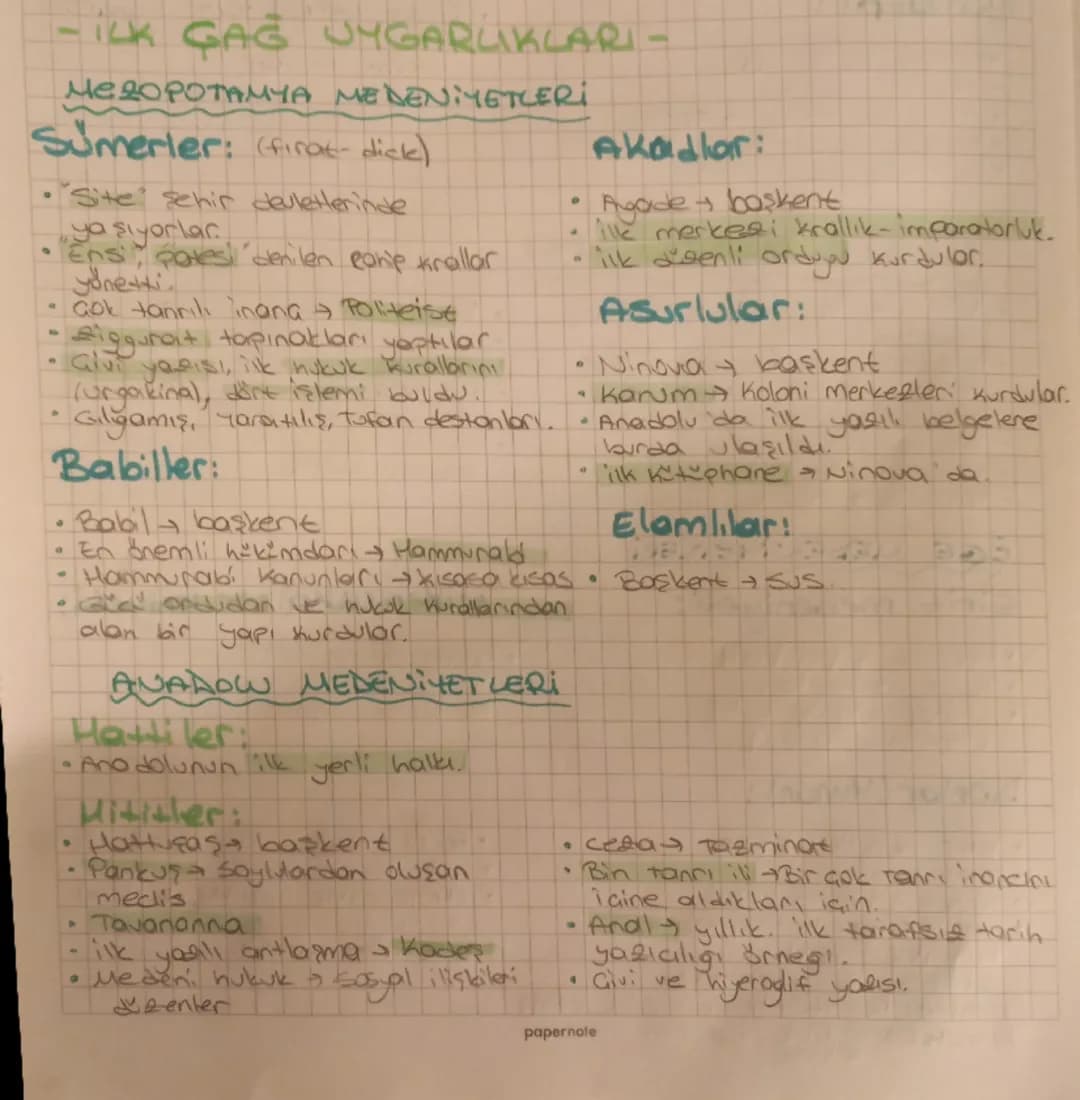 - İLK ÇAĞ UYGARLIKLARI -
MEZOPOTAMYA MEDENİYETLERİ
Sümerler: (fırat- dicle)
• "Site" şehir devletlerinde
yaşıyorlar.
• "Ensi", "patesi" denilen rahip krallar
yönetti.
• Çok tanrılı inanç → Politeist
• Ziggurat tapınakları yaptılar
• Çivi yazısı, ilk hukuk kurallarını
(urgakina), dört işlemi buldu.
• Gılgamış, Yaratılış, Tufan destanları.
Babiller:
• Babil → başkent
• En önemli hükümdarı → Hammurabi
• Hammurabi Kanunları → kısasa kısas
• Gücü ordudan ve hukuk kurallarından
alan bir yapı kurdular.
Akadlar:
• Agade → başkent
• ilk merkezi krallık- imparatorluk.
• ilk düzenli orduyu kurdular.
Asurlular:
• Ninova → başkent
• Karum → Koloni merkezleri kurdular.
• Anadolu'da ilk yazılı belgelere
burda ulaşıldı.
• ilk kütüphane → Ninova'da.
Elamlılar:
• Başkent → SUS
ANADOLU MEDENİYETLERİ
Hattiler:
• Anadolunun ilk yerli halkı.
Hititler:
• Hattuşaş → başkent
• Pankuş → Soylulardan oluşan
meclis
• Tavananna
- ilk yazılı antlaşma → Kadeş
• Medeni hukuk → Sosyal ilişkileri
düzenler
• ceza → Tazminat
• Bin tanrı ili → Bir çok Tanrı inancını
içine aldıkları için.
• Anal → yıllık. ilk tarafsız tarih
yazıcılığı örneği.
• Çivi ve hiyeroglif yazısı.
papernote